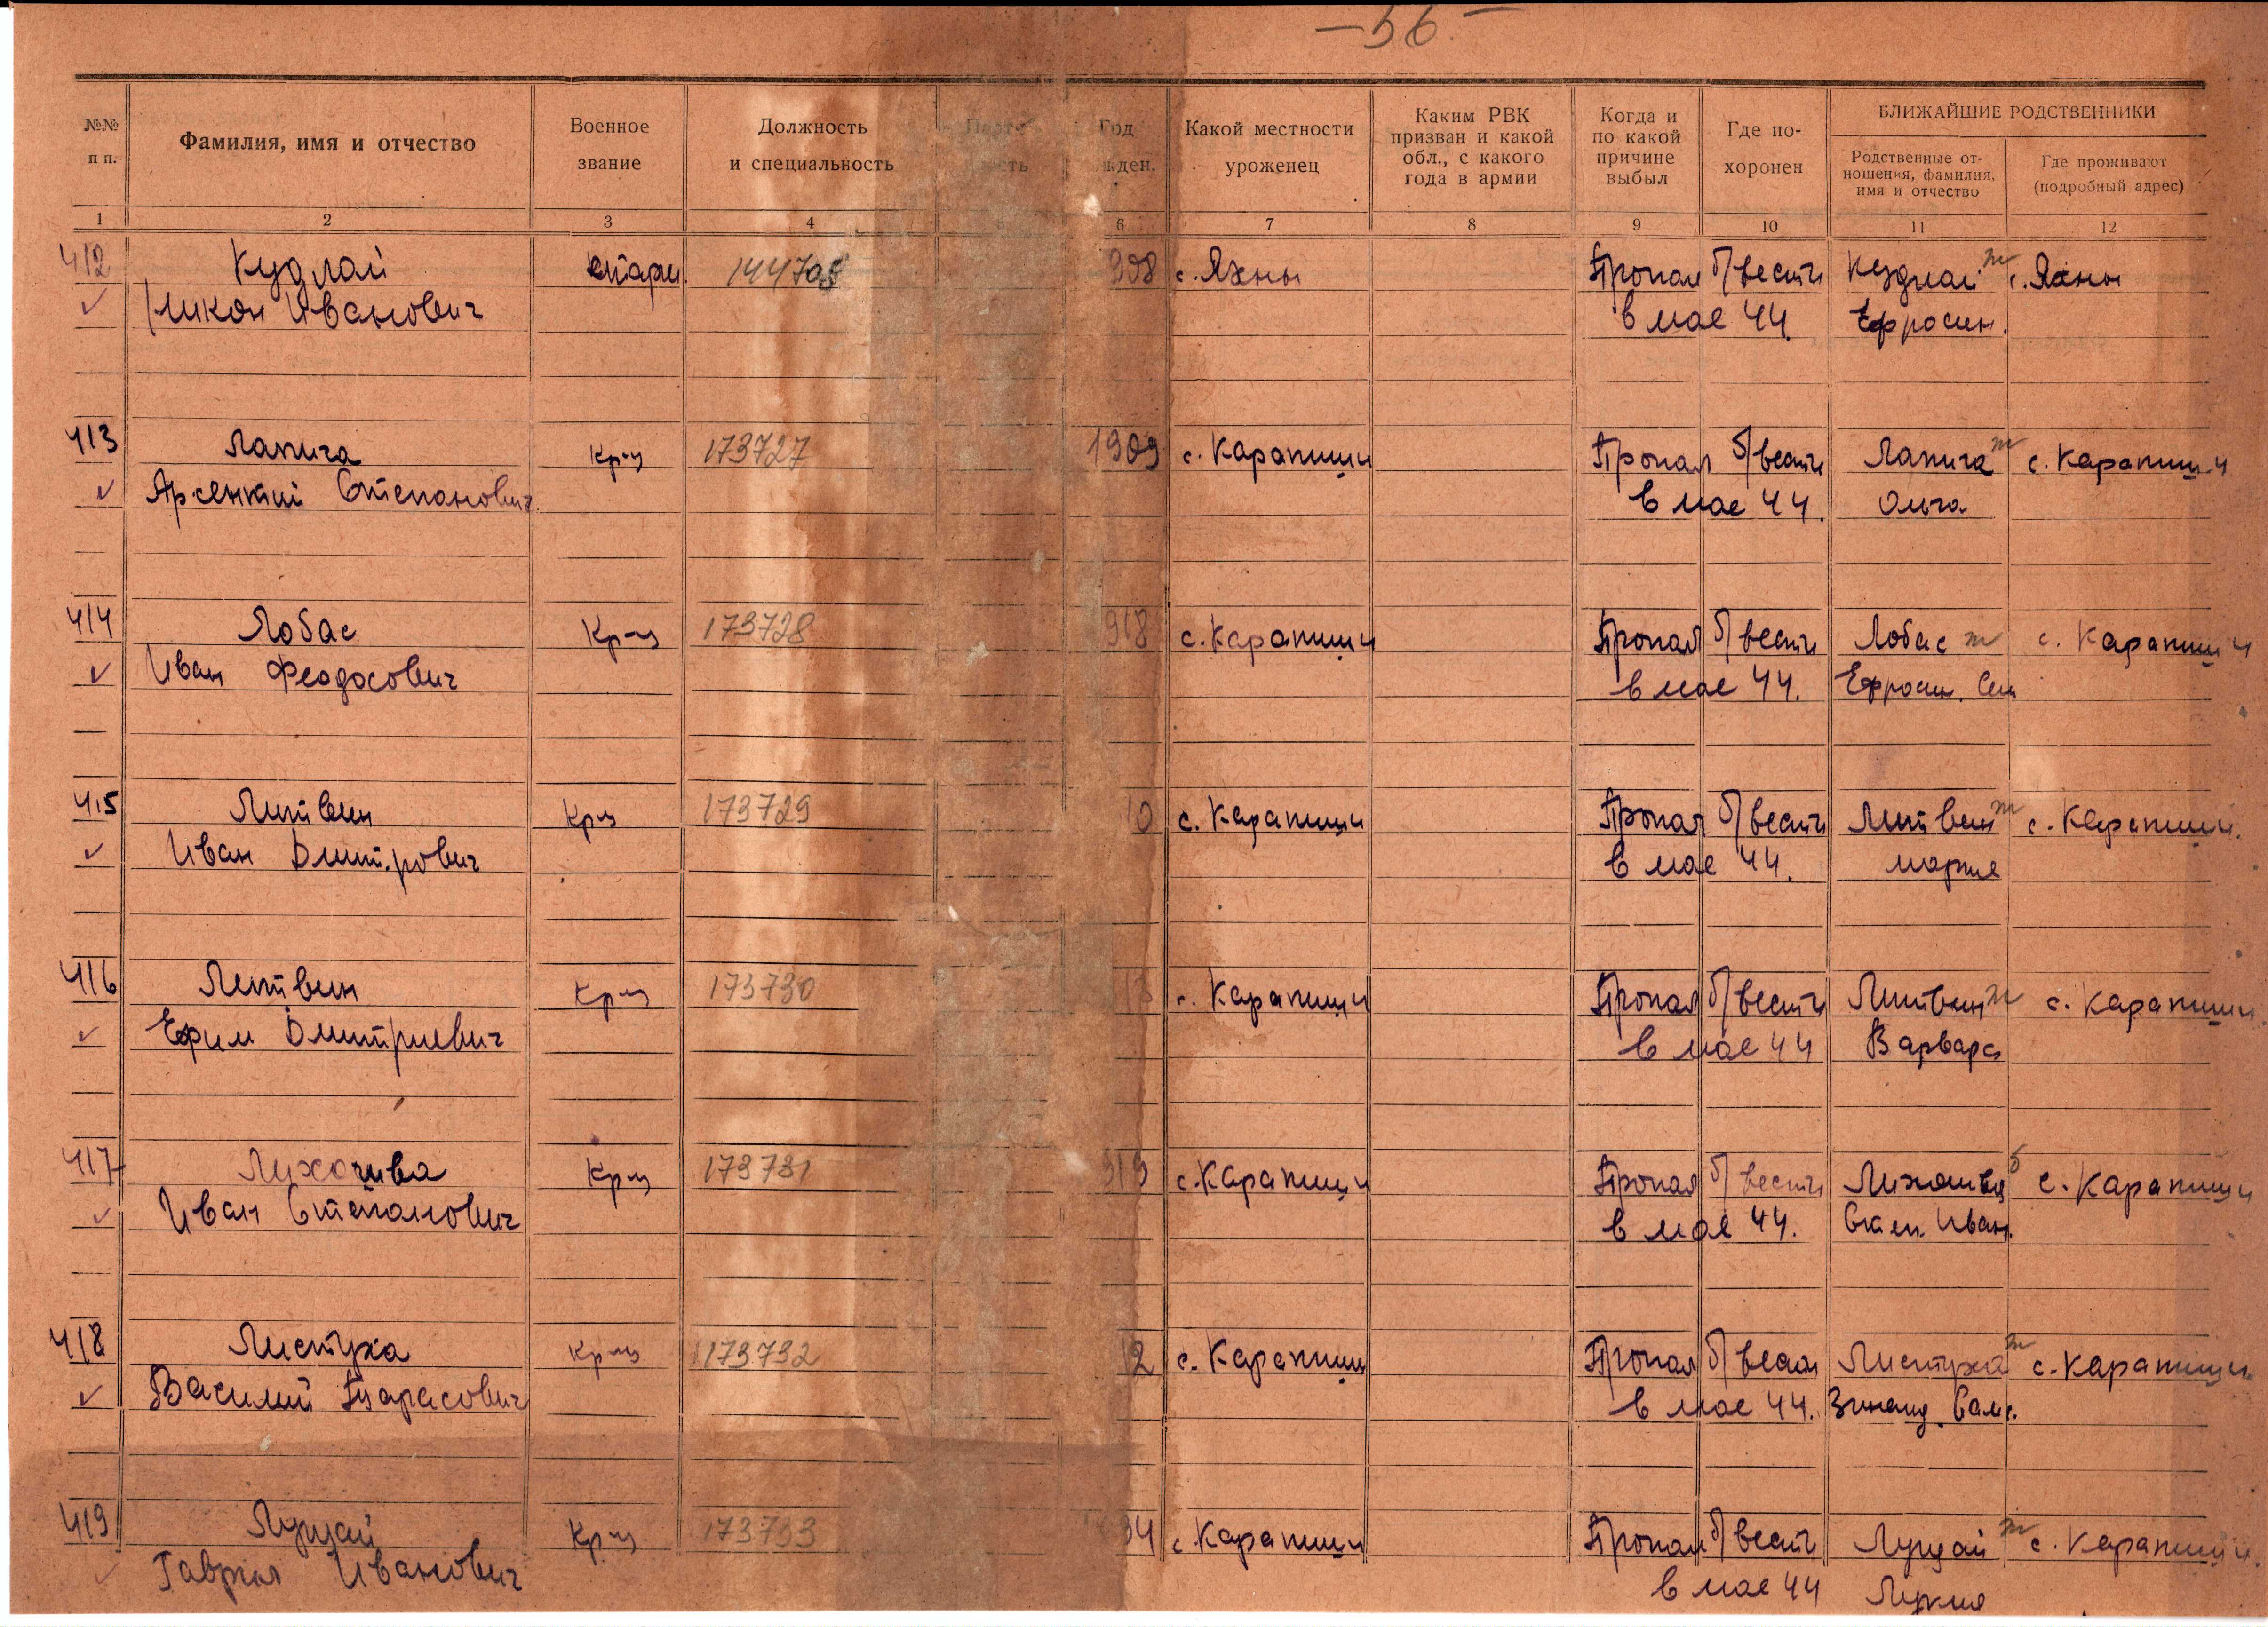 – 56 –
№№ п п.
Фамилия, имя и отчество
Военное звание
Должность и специальность
Год жден.
Какой местности уроженец
Каким РВК призван и какой обл., с какого года в армии
Когда и по какой причине выбыл
Где по-хоронен
БЛИЖАЙШИЕ РОДСТВЕННИКИ
Родственные от-ношения, фамилия, имя и отчество
Где проживают (подробный адрес)
1 2 3 4 5 6 7 8 9 10 11 12
412 Кудлай 144708 908 с. Яхны Пропал б/вести Кудлай ж с. Яхны
Никон Иванович в мае 44. Ефросин.
413 Лапига Кр-ц 173727 1909 с. Карапиши Пропал б/вести Лапига ж с. Карапиши
Арсентий Степанович в мае 44. Ольга
414 Лобас Кр-ц 173728 918 с. Карапиши Пропал б/вести Лобас ж с. Карапиши
Иван Феодосович в мае 44. Ефросин. Сем
415 Литвин Кр-ц 173729 10 с. Карапиши Пропал б/вести Литвин ж с. Карапиши.
Иван Дмит.рович в мае 44. Мария
416 Литвин Кр-ц 173730 13 с. Карапиши Пропал б/вести Литвин ж с. Карапиши
Ефим Дмитриевич в мае 44 Варвара
417 Лихошва Кр-ц 173731 919 с. Карапиши Пропал б/вести Лихошва б с. Карапиши
Иван Степанович в мае 44. Иван.
418 Листуха Кр-ц 173732 12 с. Карапиши Пропал б/вести Листуха ж с. Карапиши
Василий Тарасович в мае 44. Зинаид. Сам.
419 Луцай Кр-ц 173733 с. Карапиши Пропал б/вести Луцай ж с. Карапиши
Гаврил Иванович в мае 44 Лукия